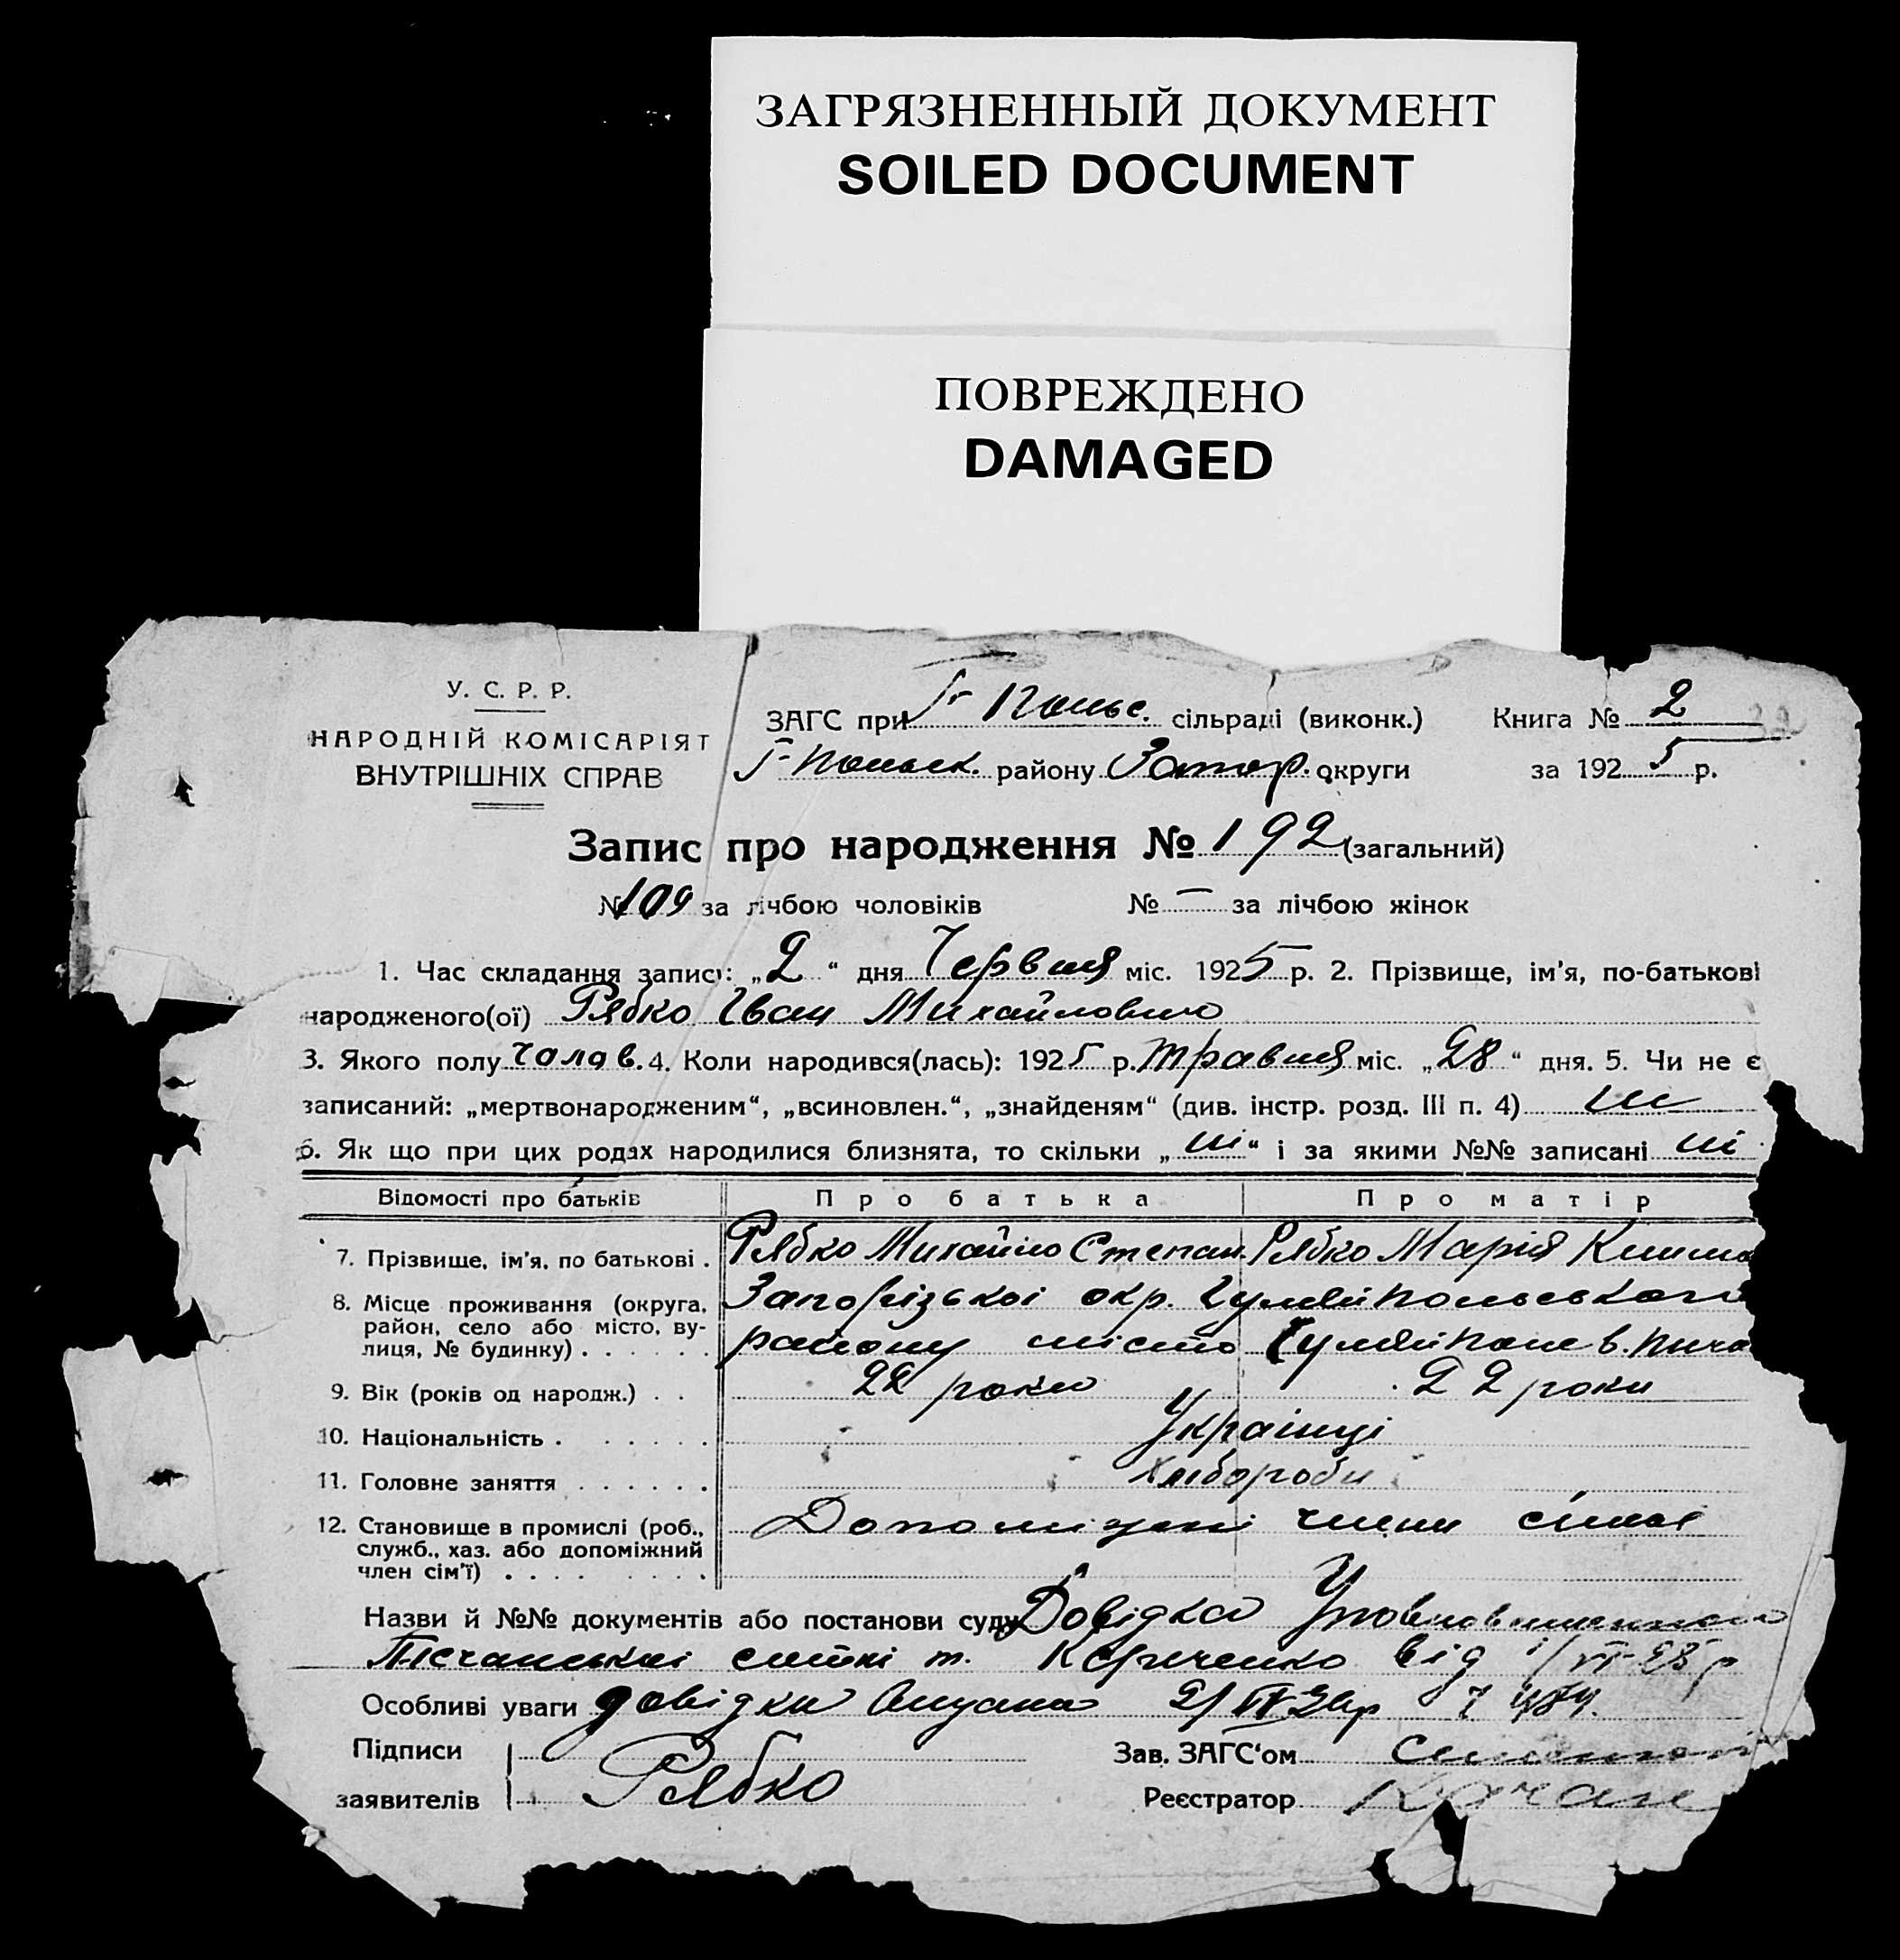 ЗАГРЯЗНЕННЫЙ ДОКУМЕНТ
SOILED DOCUMENT
ПОВРЕЖДЕНО
DAMAGED
У. С. Р. Р.
НАРОДНІЙ КОМІСАРІЯТ
ВНУТРІШНІХ СПРАВ
ЗАГС при Г- Польс. сільраді (виконк.) Книга № 2
Г-Польск. району Запор. округи за 1925 р.
Запис про народження № 192 (загальний)
№ 109 за лічбою чоловіків № — за лічбою жінок
1. Час складання запису: „2“ дня Червня міс. 1925 р. 2. Прізвище, ім’я, по-батькові
народженого(ої) Рябко Іван Михайлович
3. Якого полу чолов. 4. Коли народився(лась): 1925 р. Травня міс. „28“ дня. 5. Чи не є
записаний: „мертвонародженим“, „всиновлен.“, „знайденям“ (див. інстр. розд. III п. 4) ні
6. Як що при цих родах народилися близнята, то скільки „ні“ і за якими №№ записані ні
Відомості про батьків Про батька Про матір
7. Прізвище, ім’я, по батькові . Рябко Михайло Степан. Рябко Марія
8. Місце проживання (округа, район, село або місто, вулиця, № будинку) . . . . . . Запорізької окр. Гуляйпольського
району місто Гуляйполе в.
9. Вік (років од народж.) . . 22 роки 22 роки
10. Національність . . . . . . Українці
11. Головне заняття . . . . . . Хлібороби
12. Становище в промислі (роб., служб., хаз. або допоміжний член сім’ї) . . . . . . . . . Допоміжні члени сімї
Назви й №№ документів або постанови суду Довідка Уповноваженого
Пісчанської сотні т. від 1/VI-25 р
Особливі уваги довідки 2/VI
Підписи
заявителів Рябко
Зав. ЗАГС‘ом
Реєстратор